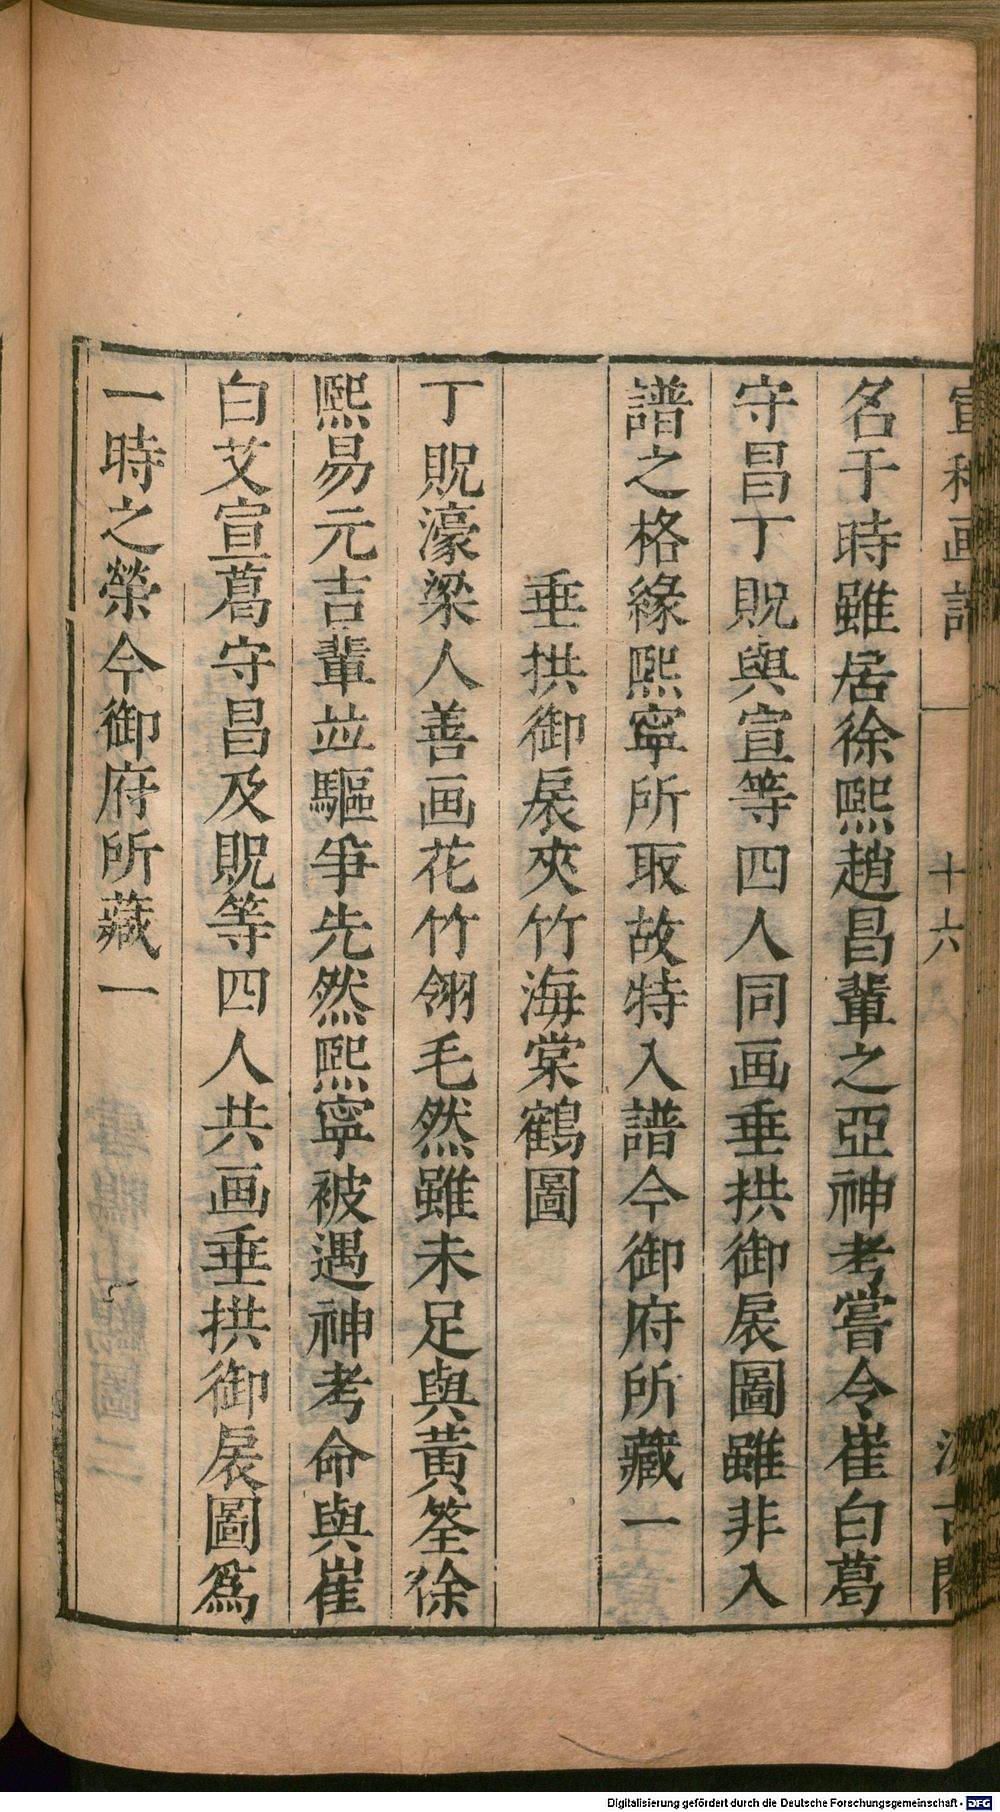 宣和画譜 十六 汲古閣
名于時雖居徐熙趙昌輩之亞神考嘗令崔白葛
守昌丁貺與宣等四人同画垂拱御扆圖雖非入
譜之格緣熙寧所取故特入譜今御府所藏一
垂拱御扆夾竹海棠鶴圖
丁貺濠梁人善画花竹翎毛然雖未足與黃筌徐
熙易元吉輩並驅爭先然熙寧被遇神考命與崔
白艾宣葛守昌及貺等四人共画垂拱御扆圖爲
一時之榮今御府所藏一
Digitalisierung gefördert durch die Deutsche Forschungsgemeinschaft - DFG